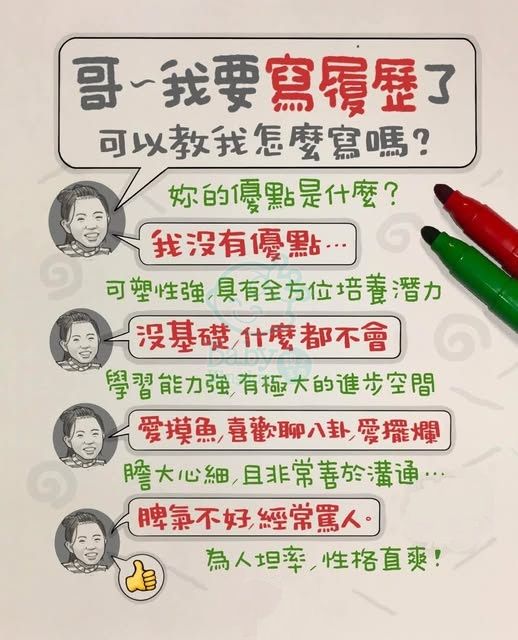 哥~我要寫履歷了
可以教我怎麼寫嗎？
妳的優點是什麼？
我沒有優點…
可塑性強,具有全方位培養潛力
沒基礎,什麼都不會
學習能力強,有極大的進步空間
愛摸魚,喜歡聊八卦,愛擺爛
膽大心細,且非常善於溝通…
脾氣不好,經常罵人。
為人坦率,性格直爽！